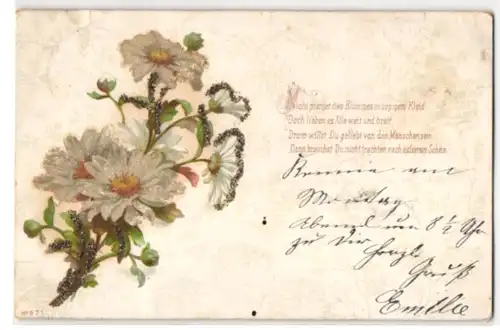 Nicht pranget dies Blümchen in üppigem Kleid
Doch lieben es Alle weit und breit
Drum willst Du geliebt von den Menschen sein
Dann brauchst Du nicht trachten nach äusserem Schein.
Komme am
Montag
Abend um 8 1/2 Uhr
zu Dir Herzl.
Gruß
Emilie
No 671